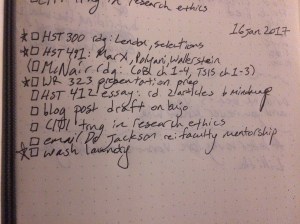 CITI tring in research ethics
16 Jan 2017
HST 300 rdg: London, selections
HST 491: Marx, Polyani, Wallerstein
(McNair rdg: CoBL ch 1-4, TSIS ch 1-3)
WR 323 presentation prep
HST 412 essay: rd 2 articles &
blog post draft on bujo
CITI tring in research ethics
email Dr Jackson re: faculty mentorship
wash laundry